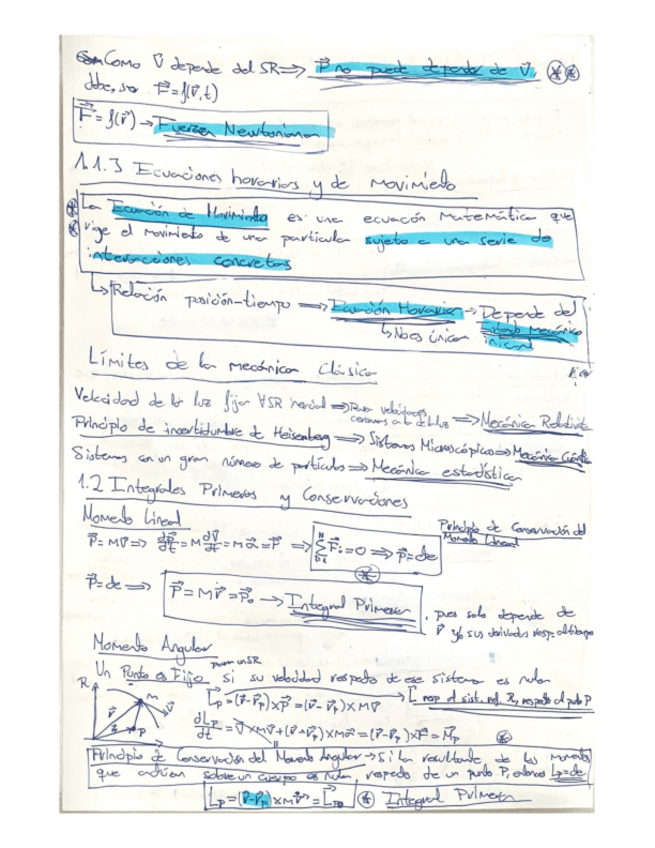 Como v⃗ depende del SR ⟹ F⃗ no puede depender de v⃗
debe ser F⃗ = f(r⃗,t)
F⃗ = f(r⃗) → Fuerzas Newtonianas
1.1.3 Ecuaciones horarias y de movimiento
La Ecuación de Movimiento es una ecuación matemática que
rige el movimiento de una partícula sujeta a una serie de
interacciones concretas
↳ Relación posición-tiempo ⟹ Ecuación Horaria → Depende del
↳ No es única Estado mecánico
inicial
Límites de la mecánica Clásica
Velocidad de la luz fija ∀SR inercial ⟹ Para velocidades
cercanas a la de la luz ⟹ Mecánica Relativista
Principio de incertidumbre de Heisenberg ⟹ Sistemas Microscópicos ⟹ Mecánica Cuántica
Sistemas con un gran número de partículas ⟹ Mecánica estadística
1.2 Integrales Primeras y Conservaciones
Momento Lineal
Principio de Conservación del
Momento Lineal
p⃗ = mv⃗ ⟹ dp⃗/dt = m dv⃗/dt = ma⃗ = F⃗ ⟹ Σ F⃗i = 0 ⟹ p⃗ = cte
p⃗ = cte ⟹ p⃗ = mv⃗ = p⃗₀ → Integral Primera, pues solo depende de
r⃗ y/o sus derivadas resp. al tiempo
Momento Angular
Un Punto es Fijo para un SR si su velocidad respecto de ese sistema es nula
L⃗p = (r⃗-r⃗p)×p⃗ = (r⃗-r⃗p)×mv⃗ → L⃗ resp al sist. ref. R, respecto al pto P
dL⃗p/dt = v⃗×mv⃗ + (r⃗-r⃗p)×ma⃗ = (r⃗-r⃗p)×F⃗ = M⃗p
R m r⃗ v⃗ P
Principio de Conservación del Momento Angular → Si la resultante de los momentos
que actúan sobre un cuerpo es nula, respecto de un punto P, entonces L⃗p = cte
L⃗p = (r⃗-r⃗p)×mv⃗ = L⃗p0 Integral Primera